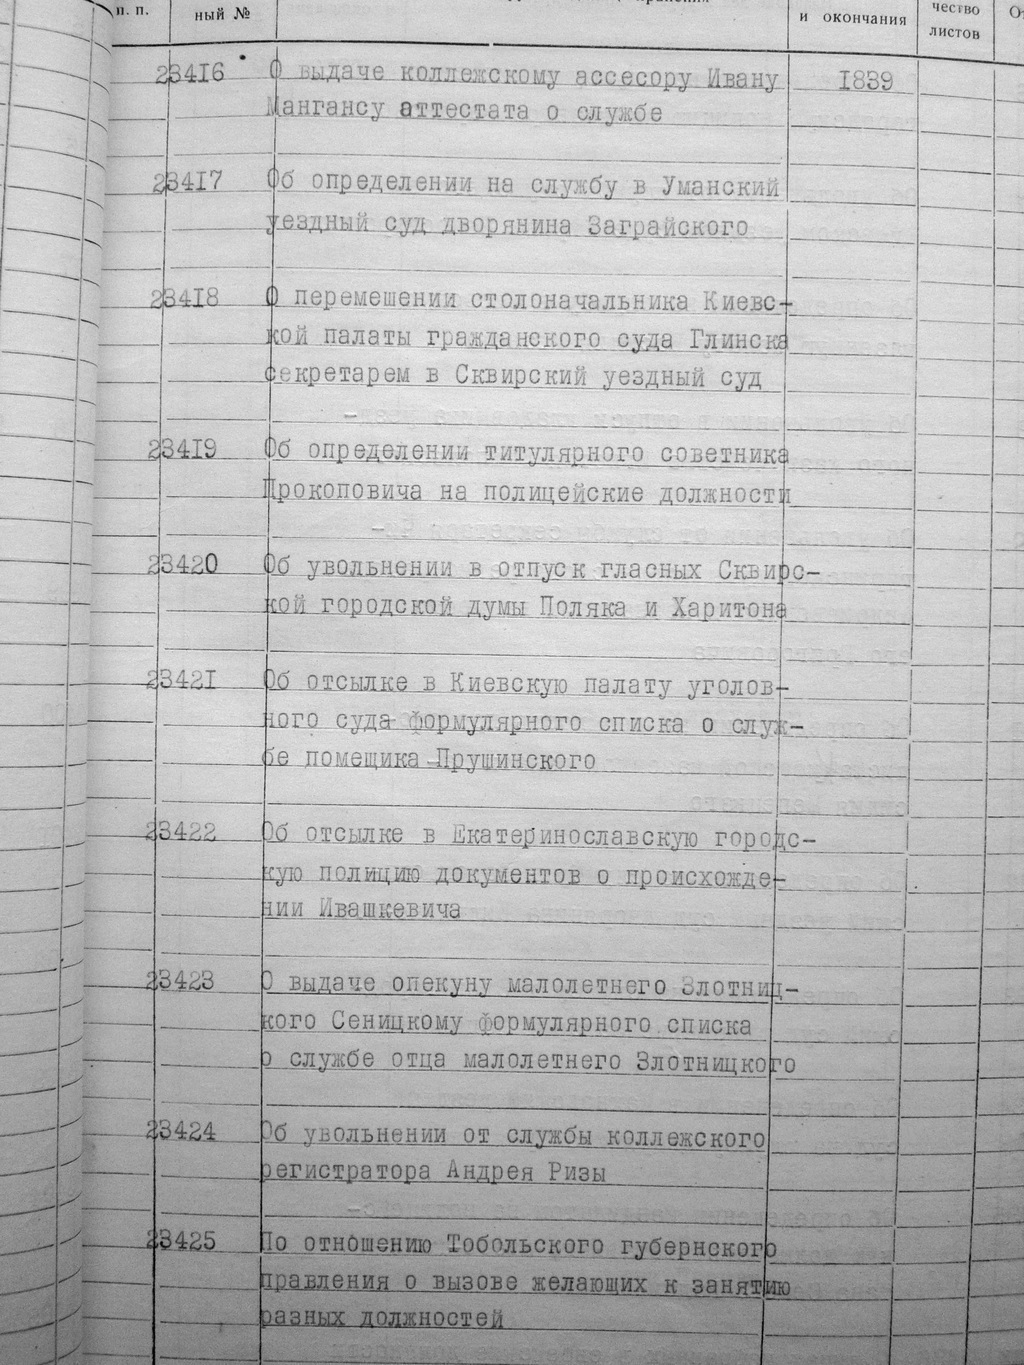 п. п. ный № и окончания чество листов
23416 О выдаче коллежскому ассесору Ивану 1839
Мангансу аттестата о службе
23417 Об определении на службу в Уманский
уездный суд дворянина Заграйского
23418 О перемешении столоначальника Киевс-
кой палаты гражданского суда Глинска
секретарем в Сквирский уездный суд
23419 Об определении титулярного советника
Прокоповича на полицейские должности
23420 Об увольнении в отпуск гласных Сквирс-
кой городской думы Поляка и Харитона
23421 Об отсылке в Киевскую палату уголов-
ного суда формулярного списка о служ-
бе помещика Прушинского
23422 Об отсылке в Екатеринославскую городс-
кую полицию документов о происхожде-
нии Ивашкевича
23423 О выдаче опекуну малолетнего Злотниц-
кого Сеницкому формулярного списка
о службе отца малолетнего Злотницкого
23424 Об увольнении от службы коллежского
регистратора Андрея Ризы
23425 По отношению Тобольского губернского
правления о вызове желающих к занятию
разных должностей